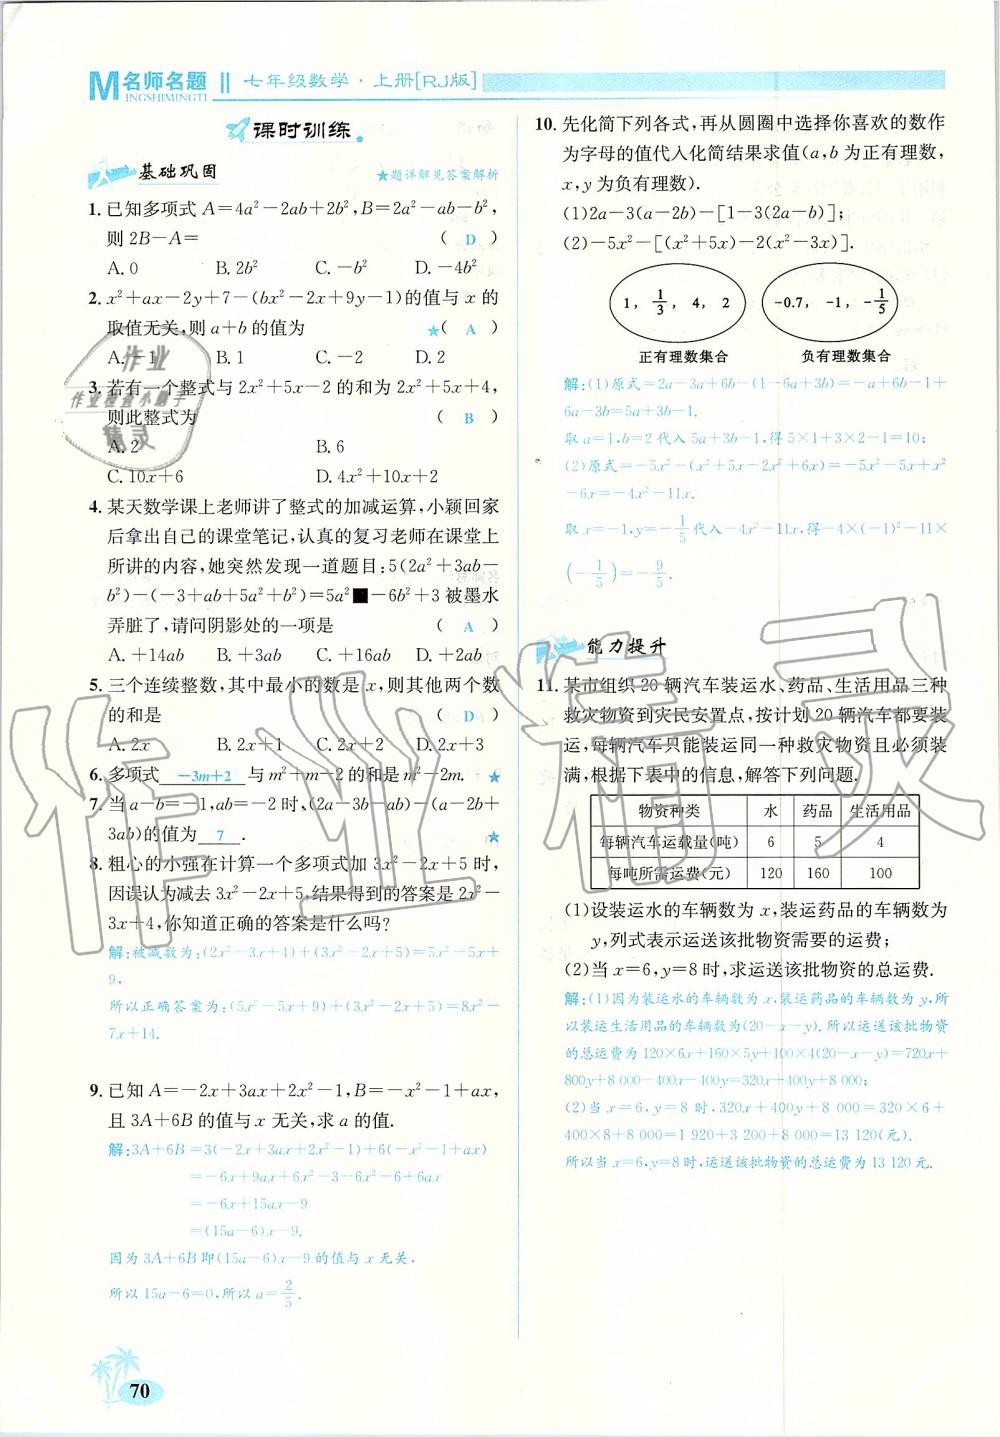 M名师名题 七年级数学·上册[RJ版]
INGSHIMINGTI
课时训练
基础巩固
★题详解见答案解析
1. 已知多项式 A=4a²-2ab+2b²,B=2a²-ab-b²,
则 2B-A= ( D )
A. 0 B. 2b² C. -b² D. -4b²
2. x²+ax-2y+7-(bx²-2x+9y-1)的值与 x 的
取值无关,则 a+b 的值为 ★( A )
A. -1 B. 1 C. -2 D. 2
3. 若有一个整式与 2x²+5x-2 的和为 2x²+5x+4,
则此整式为 ( B )
A. 2 B. 6
C. 10x+6 D. 4x²+10x+2
4. 某天数学课上老师讲了整式的加减运算,小颖回家
后拿出自己的课堂笔记,认真的复习老师在课堂上
所讲的内容,她突然发现一道题目:5(2a²+3ab-
b²)-(-3+ab+5a²+b²)=5a²■-6b²+3 被墨水
弄脏了,请问阴影处的一项是 ( A )
A. +14ab B. +3ab C. +16ab D. +2ab
5. 三个连续整数,其中最小的数是 x,则其他两个数
的和是 ( D )
A. 2x B. 2x+1 C. 2x+2 D. 2x+3
6. 多项式 -3m+2 与 m²+m-2 的和是 m²-2m. ★
7. 当 a-b=-1,ab=-2 时,(2a-3b-ab)-(a-2b+
3ab)的值为 7 . ★
8. 粗心的小强在计算一个多项式加 3x²-2x+5 时,
因误认为减去 3x²-2x+5,结果得到的答案是 2x²-
3x+4,你知道正确的答案是什么吗?
解:被减数为:(2x²-3x+4)+(3x²-2x+5)=5x²-5x+
9,
所以正确答案为:(5x²-5x+9)+(3x²-2x+5)=8x²-
7x+14.
9. 已知 A=-2x+3ax+2x²-1,B=-x²-1+ax,
且 3A+6B 的值与 x 无关,求 a 的值.
解:3A+6B=3(-2x+3ax+2x²-1)+6(-x²-1+ax)
=-6x+9ax+6x²-3-6x²-6+6ax
=-6x+15ax-9
=(15a-6)x-9.
因为 3A+6B 即(15a-6)x-9 的值与 x 无关,
所以 15a-6=0,所以 a=2/5.
70
10. 先化简下列各式,再从圆圈中选择你喜欢的数作
为字母的值代入化简结果求值(a,b 为正有理数,
x,y 为负有理数).
(1)2a-3(a-2b)-[1-3(2a-b)];
(2)-5x²-[(x²+5x)-2(x²-3x)].
1, 1/3, 4, 2 -0.7, -1, -1/5
正有理数集合 负有理数集合
解:(1)原式=2a-3a+6b-(1-6a+3b)=-a+6b-1+
6a-3b=5a+3b-1.
取 a=1,b=2 代入 5a+3b-1,得 5×1+3×2-1=10;
(2)原式=-5x²-(x²+5x-2x²+6x)=-5x²-5x+x²
-6x=-4x²-11x.
取 x=-1,y=-1/5代入-4x²-11x,得-4×(-1)²-11×
(-1/5)=-9/5.
能力提升
11. 某市组织 20 辆汽车装运水、药品、生活用品三种
救灾物资到灾民安置点,按计划 20 辆汽车都要装
运,每辆汽车只能装运同一种救灾物资且必须装
满,根据下表中的信息,解答下列问题.
物资种类 水 药品 生活用品
每辆汽车运载量(吨) 6 5 4
每吨所需运费(元) 120 160 100
(1)设装运水的车辆数为 x,装运药品的车辆数为
y,列式表示运送该批物资需要的运费;
(2)当 x=6,y=8 时,求运送该批物资的总运费.
解:(1)因为装运水的车辆数为 x,装运药品的车辆数为 y,所
以装运生活用品的车辆数为(20-x-y).所以运送该批物资
的总运费为 120×6x+160×5y+100×4(20-x-y)=720x+
800y+8 000-400x-400y=320x+400y+8 000;
(2)当 x=6,y=8 时,320x+400y+8 000=320×6+
400×8+8 000=1 920+3 200+8 000=13 120(元).
所以当 x=6,y=8 时,运送该批物资的总运费为 13 120 元.
作业
作业检查小助手
精灵
作业精灵